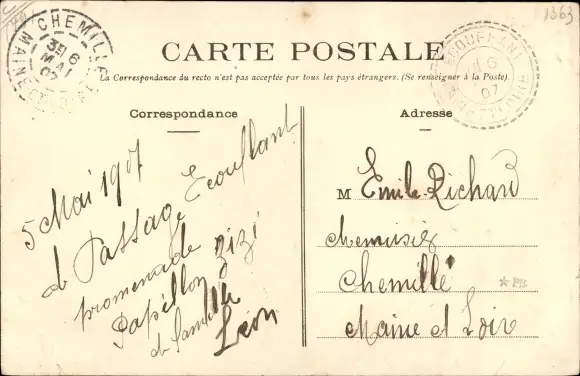 1363
CHEMILLÉ
MAINE-ET-LOIRE
3E 6
MAI
07
ECOUFLANT
6
07
CARTE POSTALE
La Correspondance du recto n'est pas acceptée par tous les pays étrangers. (Se renseigner à la Poste)
Correspondance
5 Mai 1907
d Passage Ecouflant
promenade
Papillon zizi
Léon
Adresse
M Emile Richard
Chemisier
Chemillé
Maine et Loir
*PB